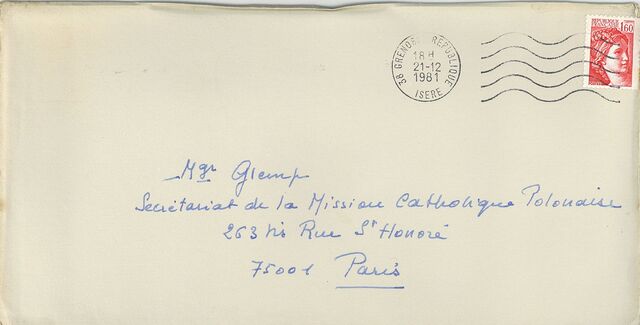 38 GRENOBLE REPUBLIQUE
18 H
21-12
1981
ISERE
REPUBLIQUE
FRANÇAISE 1,60
Mgr Glemp
Secrétariat de la Mission Catholique Polonaise
263 bis Rue St Honoré
75001 Paris